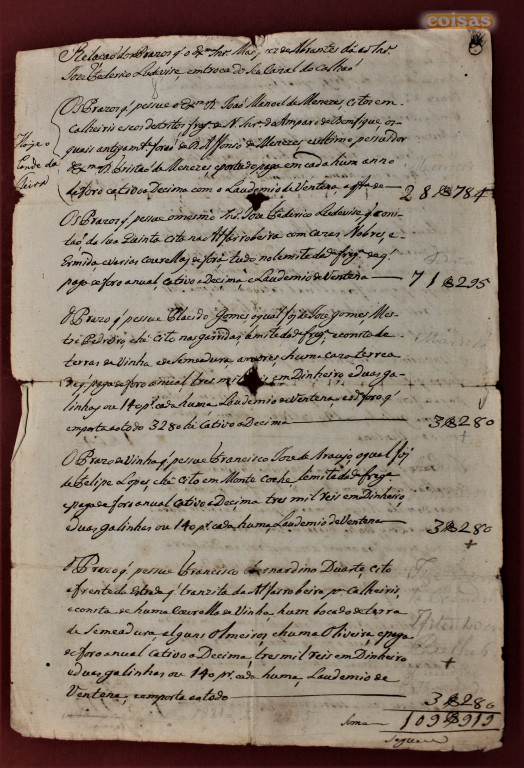 coisas
Relação dos Prazos q̃ o Exmo Snr. Marquez de Abrantes dá ao Snr.
Joze Federico Ludovise, em troca do Seu Cazal do Calhao
Hoje o
Conde da
Os Prazos q̃ pesue o Exmo D. João Manoel de Menezes, citos em
Calheiris e seos destritos freg.ª de N. Snr.ª do Amparo de Bemfique, os
quais antigam.te foraõ de D. Affonso de Menezes, e ultimo pesuidor
o Exmo D. Cristaõ de Menezes e por todos paga em cada hum anno
de foro cativo a Decima com o Laudemio de Ventena a q.ta de 28$784
Os Prazos q̃ pesue o mesmo Snr. Joze Federico Ludovise q̃ cons-
taõ de sua Quinta cita na Alfarrobeira com Cazas Nobres, e
Ermida, e varias Courellas de fora tudo no lemite da d.ª freg.ª de q̃
paga de foro anual, cativo a Decima, e Laudemio de Ventena 71$295
O Prazo q̃ pesue Placido Gomes o qual foi de Joze Gomes, Mes-
tre Pedreiro, e he cito nas garridas lemite da d.ª freg.ª e consta de
terras de Vinha, e de Semeadura, arvores e huma caza terrea
de q̃ paga de foro anual tres mil reis em Dinheiro, e duas ga-
linhas ou 140 p.r cada huma Laudemio de Ventena e o d.º foro q̃
emporta ao todo 3280 he Cativo a Decima 3$280
O Prazo da Vinha q̃ pesue Francisco Joze de Araujo, o qual foi
de Felipe Lopes, e he cito em Monte Coche, lemite da d.ª freg.ª
e paga de foro anual cativo a Decima tres mil reis em Dinheiro,
e duas galinhas ou 140 p.r cada huma, Laudemio de Ventena 3$280
O Prazo q̃ pesue Francisco Bernardino Duarte, cito
a frente da estrada q̃ tranzita da Alfarrobeira p.ª Calheiris,
e consta de huma Courella de Vinha, hum bocado de terra
de Semeadura alguns Olmeiros, e huma Oliveira, e paga
de foro anual cativo a Decima, tres mil reis em Dinheiro
e duas galinhas ou 140 p.r cada huma, Laudemio de
Ventena, e emporta ao todo 3$280
Soma 109$919
Segue